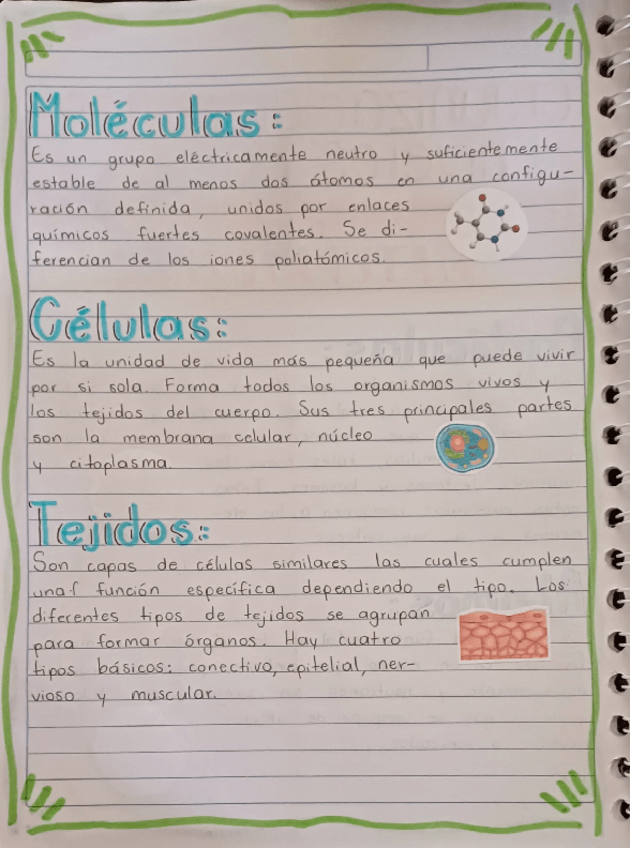 Moléculas:
Es un grupo eléctricamente neutro y suficientemente
estable de al menos dos átomos en una configu-
ración definida, unidos por enlaces
químicos fuertes covalentes. Se di-
ferencian de los iones poliatómicos.
Células:
Es la unidad de vida más pequeña que puede vivir
por si sola. Forma todos los organismos vivos y
los tejidos del cuerpo. Sus tres principales partes
son la membrana celular, núcleo
y citoplasma.
Tejidos:
Son capas de células similares las cuales cumplen
una f función específica dependiendo el tipo. Los
diferentes tipos de tejidos se agrupan
para formar órganos. Hay cuatro
tipos básicos: conectivo, epitelial, ner-
vioso y muscular.